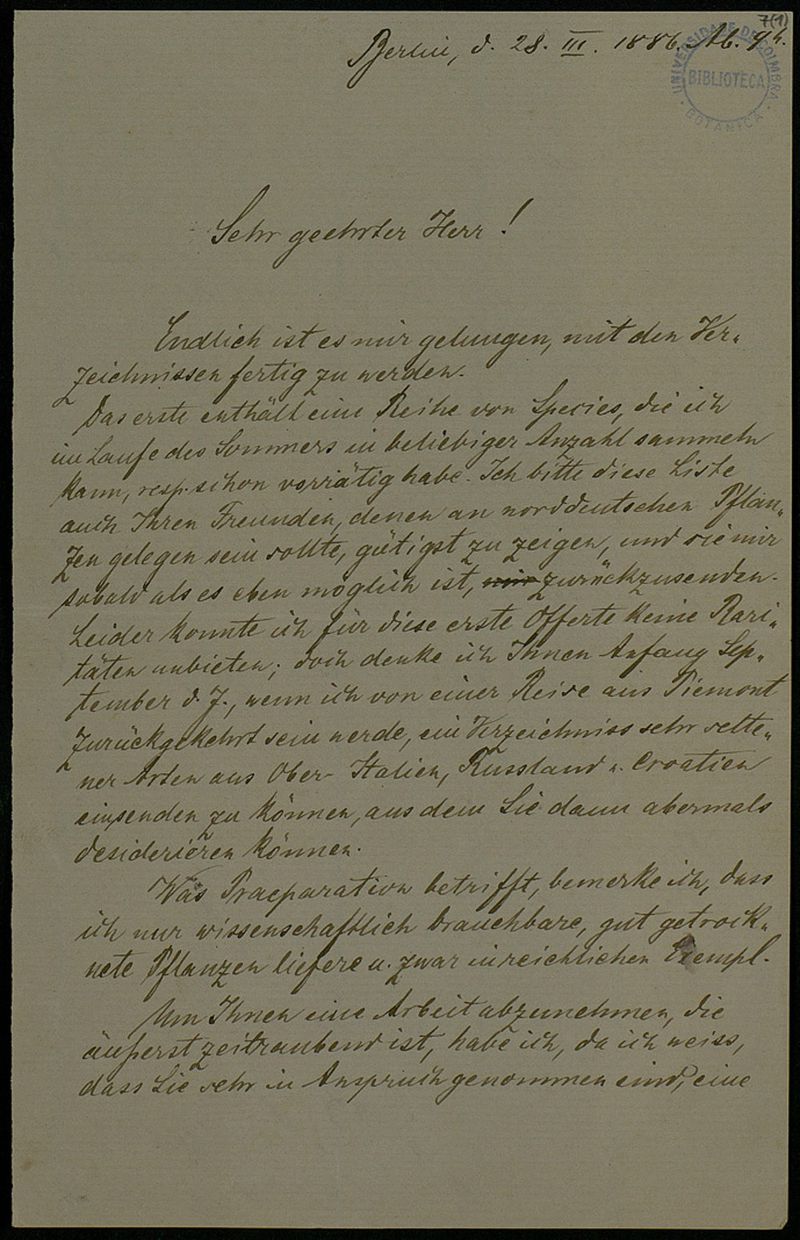 7(1)
Berlin, d. 28. III. 1886. Ab. 9 h.
UNIVERSIDADE DE COIMBRA
BIBLIOTECA
BOTANICA
Sehr geehrter Herr!
Endlich ist es mir gelungen, mit den Ver-
zeichnissen fertig zu werden.
Das erste enthält eine Reihe von Species, die ich
im Laufe des Sommers in beliebiger Anzahl sammeln
kann, resp. schon vorrätig habe. Ich bitte diese Liste
auch Ihren Freunden, denen an norddeutschen Pflan-
zen gelegen sein sollte, gütigst zu zeigen, und sie mir
sobald als es eben möglich ist, mir zurückzusenden.
Leider konnte ich für diese erste Offerte keine Rari-
täten anbieten; doch denke ich Ihnen Anfang Sep-
tember d. J., wenn ich von einer Reise aus Piemont
zurückgekehrt sein werde, ein Verzeichniss sehr selte-
ner Arten aus Ober-Italien, Russland u. Croatien
einsenden zu können, aus dem Sie dann abermals
desiderieren können.
Was Praeparation betrifft, bemerke ich, dass
ich nur wissenschaftlich brauchbare, gut getrock-
nete Pflanzen liefere u. zwar in reichlichen Exempl.
Um Ihnen eine Arbeit abzunehmen, die
äußerst zeitraubend ist, habe ich, da ich weiss,
dass Sie sehr in Anspruch genommen sind, eine